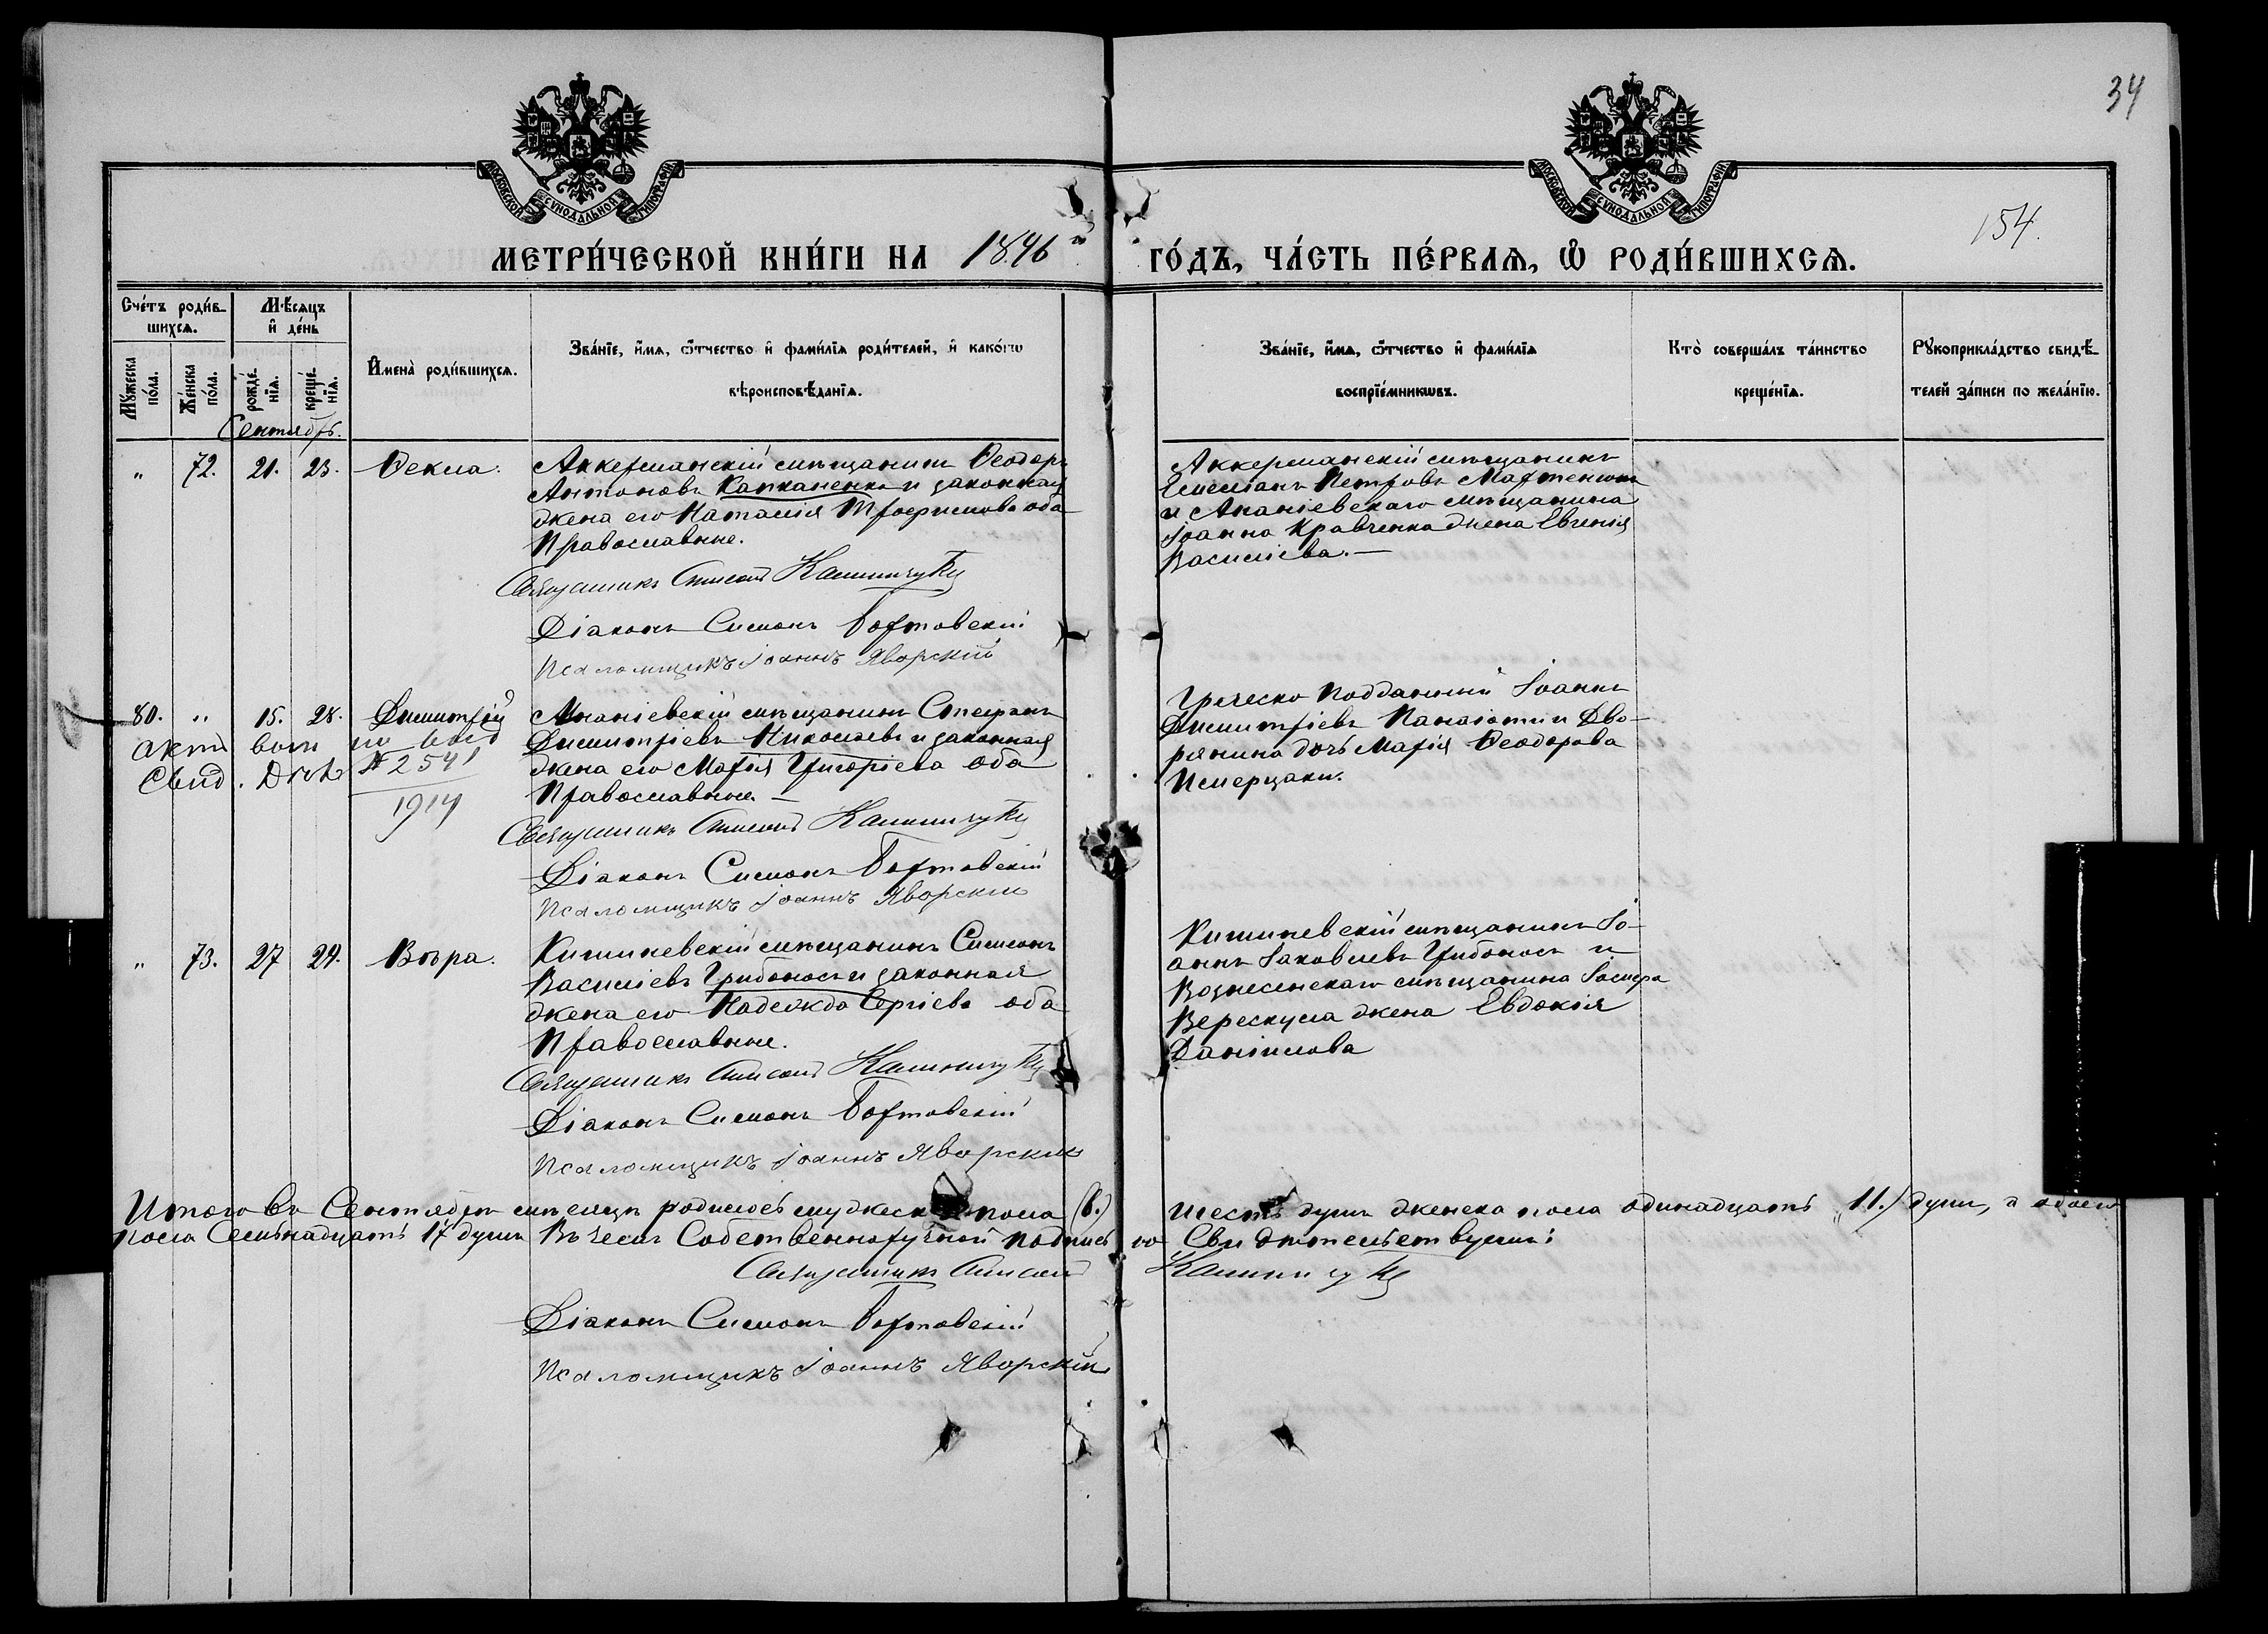 34
154.
МОСКОВСКОЙ СѴНОДАЛЬНОЙ ТИПОГРАФІИ
МОСКОВСКОЙ СѴНОДАЛЬНОЙ ТИПОГРАФІИ
МЕТРИ́ЧЕСКОЙ КНИ́ГИ НА 1896 й ГО́ДЪ, ЧА́СТЬ ПЕ́РВАѦ, Ѡ҆ РОДИ́ВШИХСѦ.
Сче́тъ роди́в-
шихсѧ.
Мꙋ́жеска по́ла.
Же́нска по́ла.
Мѣ́сѧцъ
и҆ де́нь
рожде́-нїѧ.
креще́-нїѧ.
И҆мена̀ роди́вшихсѧ.
Зва́нїе, и҆́мѧ, ѻ҆́тчество и҆ фами́лїѧ роди́телей, и҆ како́гѡ
вѣроисповѣ́данїѧ.
Зва́нїе, и҆́мѧ, ѻ҆́тчество и҆ фами́лїѧ
воспрїе́мникѡвъ.
Кто̀ соверша́лъ та́инство
креще́нїѧ.
Рꙋкоприкла́дство свидѣ́-
телей за́писи по жела́нїю.
Сентябрь.
" 72. 21. 23. Ѳекла.
Аккерманскій мѣщанинъ Ѳеодоръ
Антоновъ Капканенко и законная
жена его Наталія Трофимова оба
Православные.
Священникъ Калинчукъ
Діаконъ Симонъ Бортовскій
Псаломщикъ Іоаннъ Яворскій
Аккерманскій мѣщанинъ
Емеліанъ Петровъ Мартенюкъ
и Ананіевскаго мѣщанина
Іоанна Кравченка жена Евгенія
Василіева.—
80. " 15. 28. Димитрій
Акт выд
свид. № 2541
1914
Ананіевскій мѣщанинъ Стефанъ
Димитріевъ Николаевъ и законная
жена его Марія Григоріева оба
Православные.—
Священникъ Калинчукъ
Діаконъ Симонъ Бортовскій
Псаломщикъ Іоаннъ Яворскій
Греческо Подданный Іоаннъ
Димитріевъ Панаіоти и Дво-
рянина дочь Марія Ѳеодорова
" 73. 27 29. Вѣра.
Кишиневскій мѣщанинъ Симеонъ
Василіевъ Грибоносъ и законная
жена его Надежда Сергіева оба
Православные.
Священникъ Калинчукъ
Діаконъ Симонъ Бортовскій
Псаломщикъ Іоаннъ Яворскій
Кишиневскій мѣщанинъ Іо-
аннъ Іаковлевъ Грибоносъ и
Вознесенскаго мѣщанина Іосифа
Верескула жена Евдокія
Даніилова
Итого въ Сентябрѣ мѣсяцѣ родилось мужеска пола (6.) шесть душъ женска пола одинадцать "11.) душъ, а обоего
пола Семьнадцать 17 душъ Въ чемъ Собственноручной подписью Свидѣтельствуемъ:
Священникъ Калинчукъ
Діаконъ Симонъ Бортовскій
Псаломщикъ Іоаннъ Яворскій